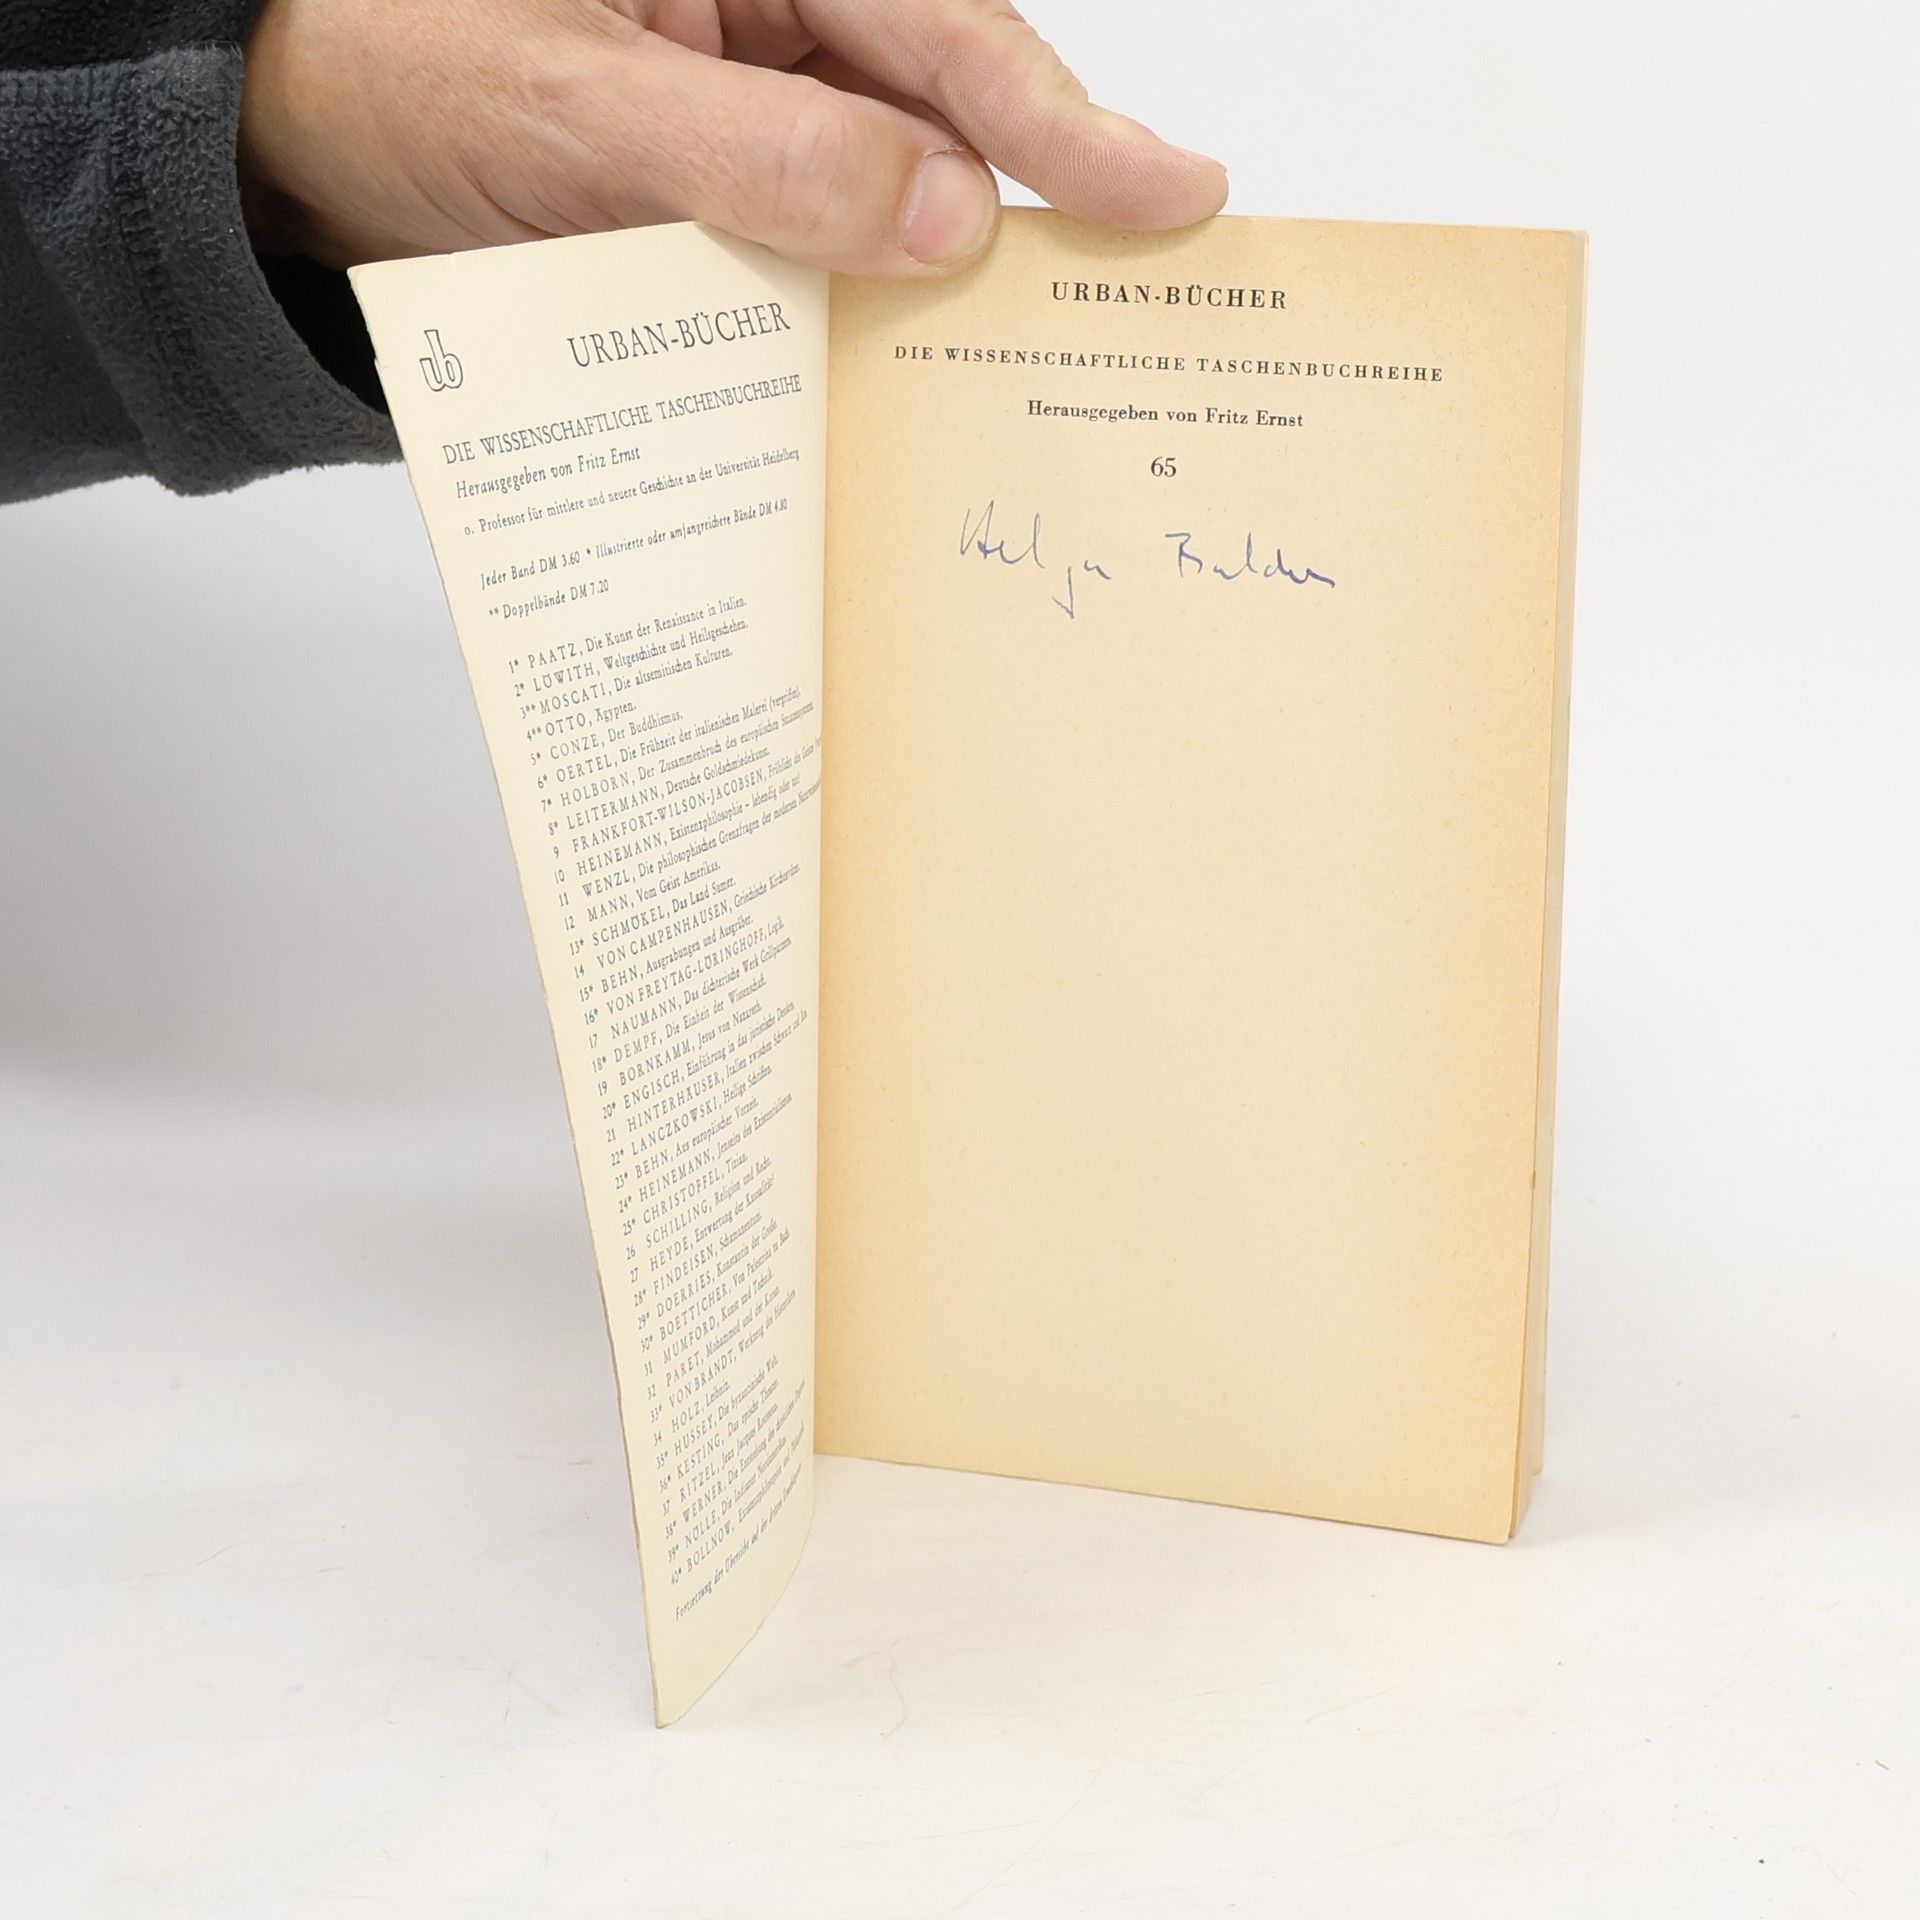 ub
URBAN-BÜCHER
DIE WISSENSCHAFTLICHE TASCHENBUCHREIHE
Herausgegeben von Fritz Ernst
o. Professor für mittlere und neuere Geschichte an der Universität Heidelberg
Jeder Band DM 3.60 * Illustrierte oder umfangreichere Bände DM 4.80
** Doppelbände DM 7.20
1* PAATZ, Die Kunst der Renaissance in Italien.
2* LÖWITH, Weltgeschichte und Heilsgeschehen.
3** MOSCATI, Die altsemitischen Kulturen.
4** OTTO, Ägypten.
5* CONZE, Der Buddhismus.
6* OERTEL, Die Frühzeit der italienischen Malerei (vergriffen).
7* HOLBORN, Der Zusammenbruch des europäischen Staatensystems.
8* LEITERMANN, Deutsche Goldschmiedekunst.
9 FRANKFORT-WILSON-JACOBSEN, Frühlicht des Geistes
10 HEINEMANN, Existenzphilosophie – lebendig oder tot?
11 WENZL, Die philosophischen Grenzfragen der modernen
12 MANN, Vom Geist Amerikas.
13* SCHMÖKEL, Das Land Sumer.
14 VON CAMPENHAUSEN, Griechische Kirchenväter.
15* BEHN, Ausgrabungen und Ausgräber.
16* VON FREYTAG-LÖRINGHOFF, Logik.
17 NAUMANN, Das dichterische Werk Grillparzers.
18* DEMPF, Die Einheit der Wissenschaft.
19 BORNKAMM, Jesus von Nazareth.
20* ENGISCH, Einführung in das juristische Denken.
21 HINTERHÄUSER, Italien zwischen Schwarz und Rot
22* LANCZKOWSKI, Heilige Schriften.
23* BEHN, Aus europäischer Vorzeit.
24* HEINEMANN, Jenseits des Existentialismus.
25* CHRISTOFFEL, Tizian.
26 SCHILLING, Religion und Recht.
27 HEYDE, Entwertung der Kausalität?
28* FINDEISEN, Schamanentum.
29* DOERRIES, Konstantin der Große.
30* BOETTICHER, Von Palestrina zu Bach
31 MUMFORD, Kunst und Technik.
32 PARET, Mohammed und der Koran.
33* VON BRANDT, Werkzeug des Historikers
34 HOLZ, Leibniz.
35* HUSSEY, Die byzantinische Welt.
36* KESTING, Das epische Theater.
37 RITZEL, Jean Jacques Rousseau.
38* WERNER, Die Entstehung des christlichen
39* NÖLLE, Die Indianer Nordamerikas.
40* BOLLNOW, Existenzphilosophie und Pädagogik
Fortsetzung der Übersicht auf der dritten Umschlagseite
URBAN-BÜCHER
DIE WISSENSCHAFTLICHE TASCHENBUCHREIHE
Herausgegeben von Fritz Ernst
65
Helga